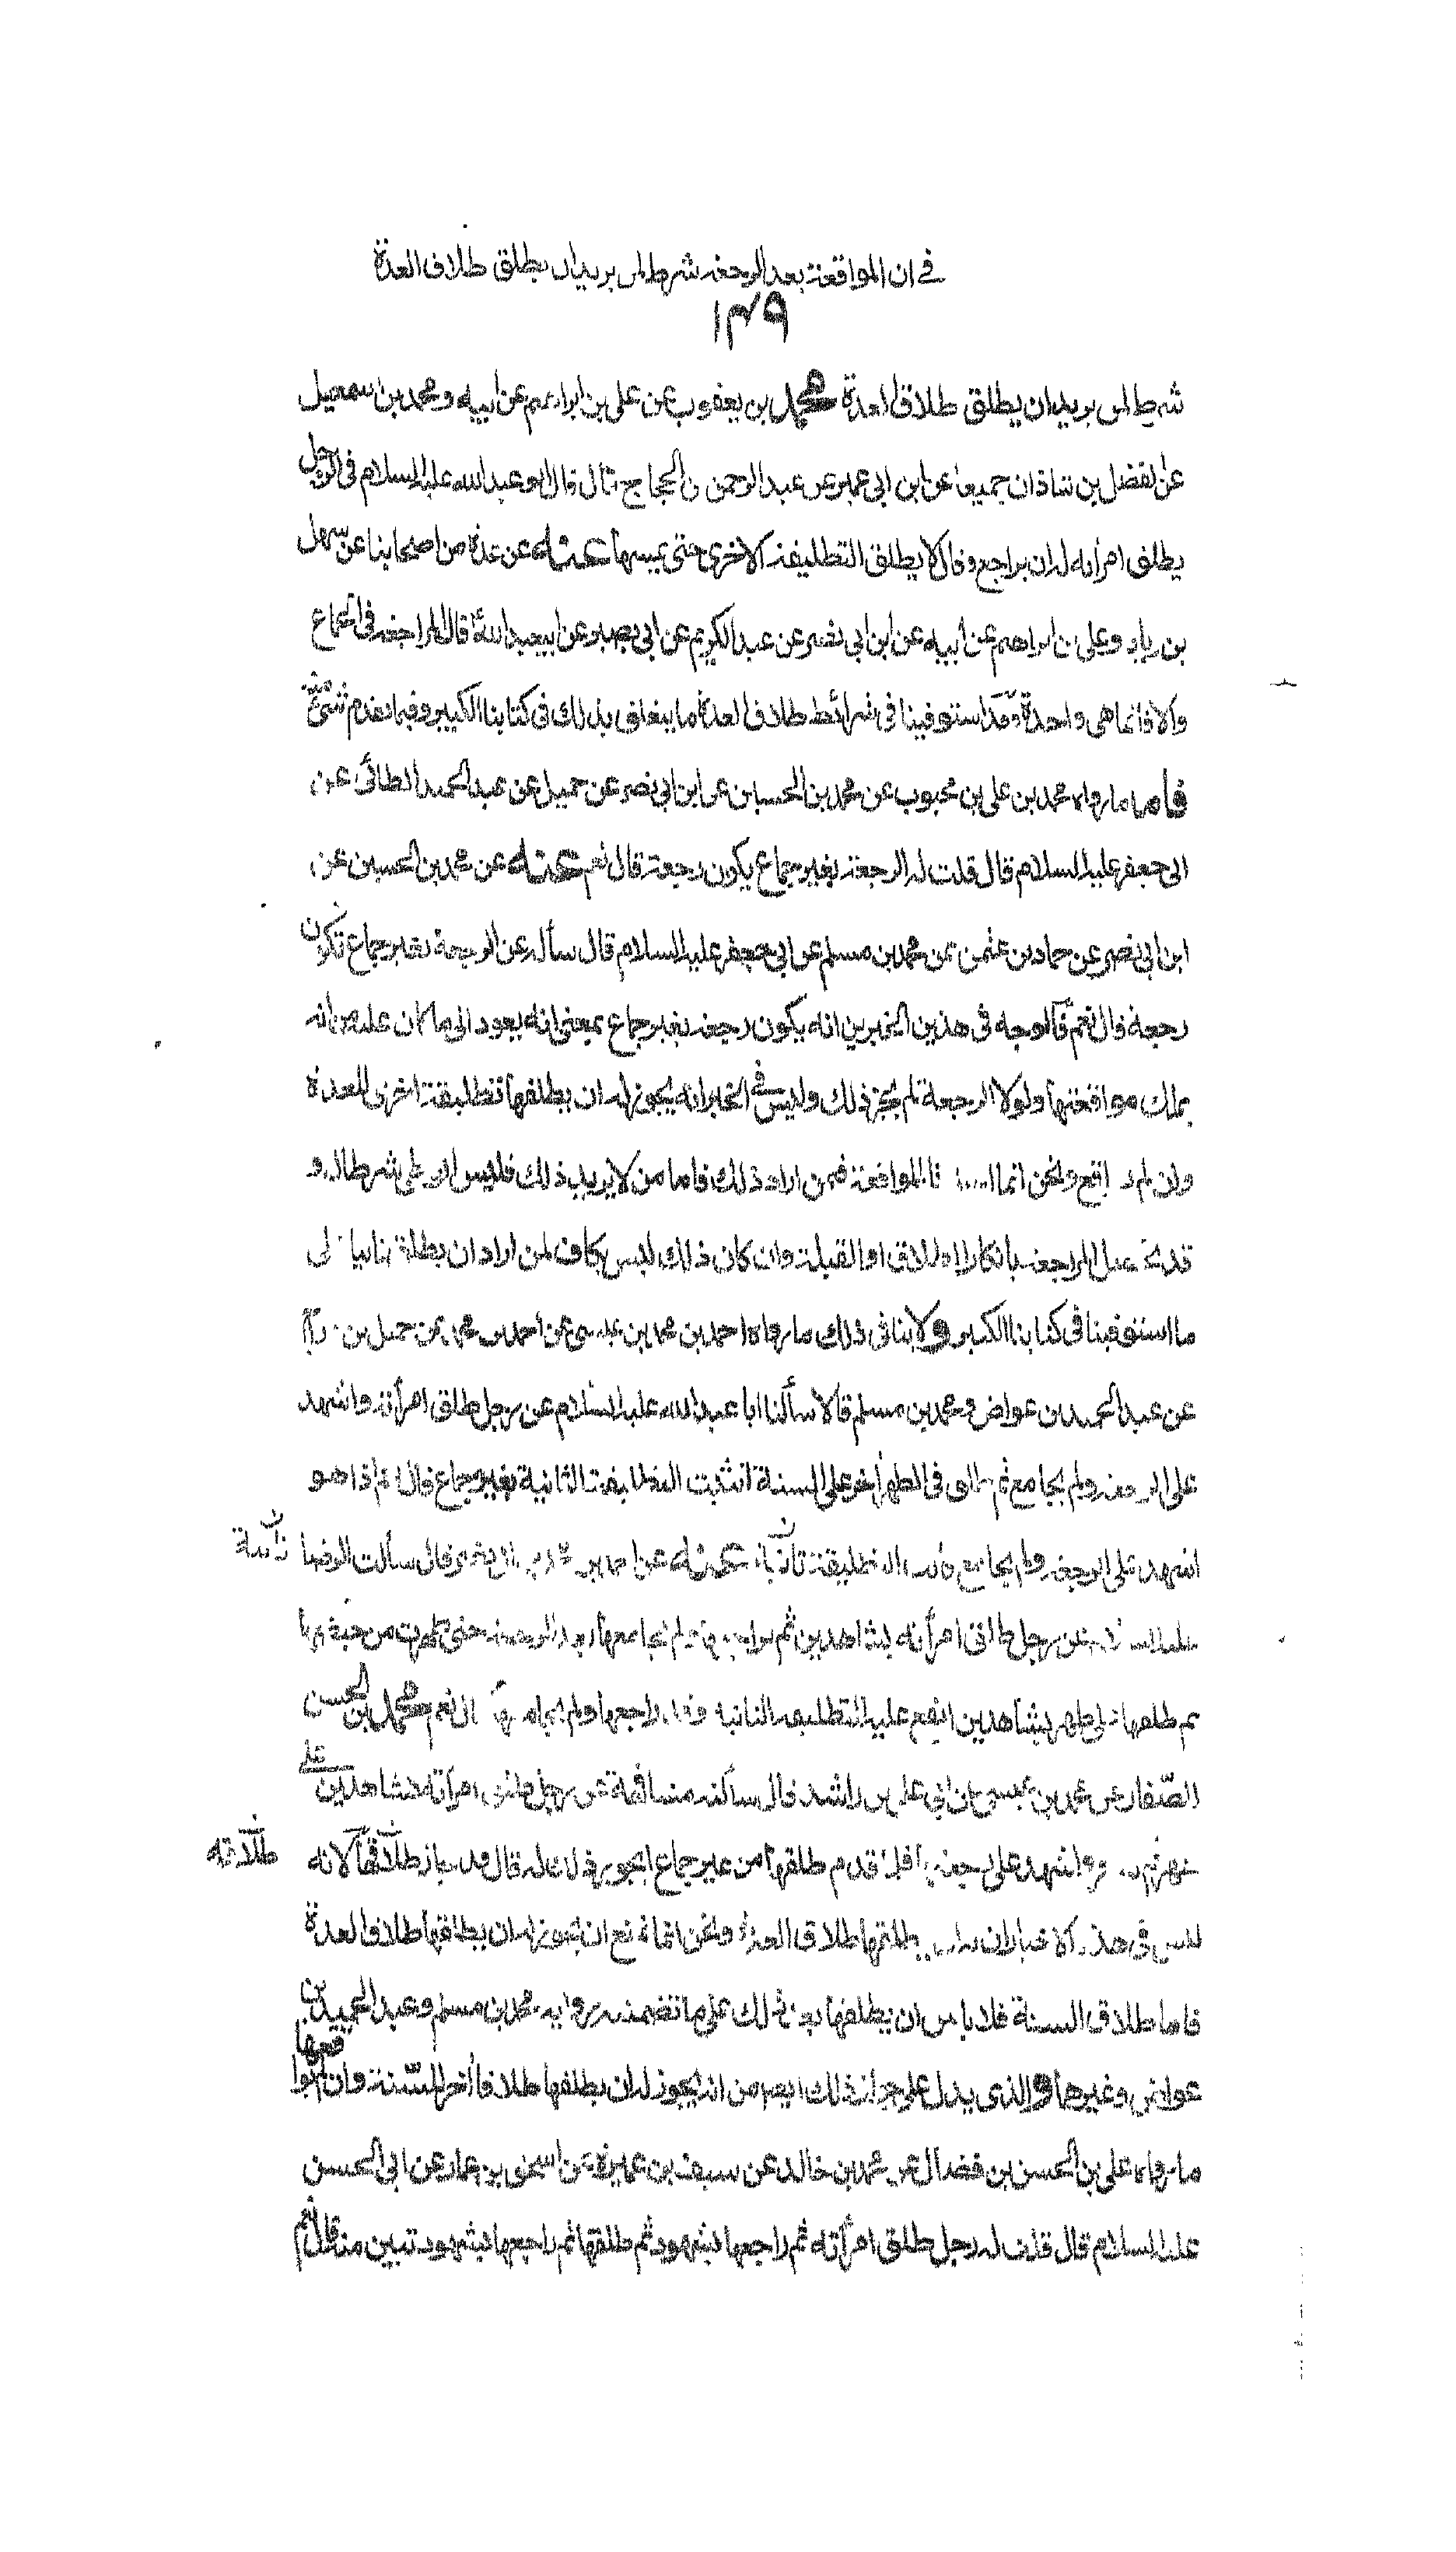 في ان المواقعة بعد الرجعة شرط لمن يريد ان يطلق طلاق العدة
١٣٩
شرط لمن يريد ان يطلق طلاق العدة محمد بن يعقوب عن علي بن ابراهيم عن ابيه و محمد بن اسمعيل
عن الفضل بن شاذان جميعا عن ابن ابي عمير عن عبد الرحمن بن الحجاج قال قال ابو عبد الله عليه السلام في الرجل
يطلق امرأته له ان يراجع وقال لا يطلق التطليقة الاخرى حتى يمسها عنه عن عدة من اصحابنا عن سهل
بن زياد وعلي بن ابراهيم عن ابيه عن ابن ابي نصر عن عبد الكريم عن ابي بصير عن ابيعبد الله ع قال المراجعة في الجماع
والا فانما هي واحدة وقد استوفينا في شرائط طلاق العدة ما يتعلق بذلك في كتابنا الكبير وفيما تقدم شئ منه
فاما ما رواه محمد بن علي بن محبوب عن محمد بن الحسين عن ابن ابي نصر عن جميل عن عبد الحميد الطائي عن
ابي جعفر عليه السلام قال قلت له الرجعة بغير جماع يكون رجعة قال نعم عنه عن محمد بن الحسين عن
ابن ابي نصر عن حماد بن عثمن عن محمد بن مسلم عن ابي جعفر عليه السلام قال سأله عن الرجعة بغير جماع تكون
رجعة قال نعم فالوجه في هذين الخبرين انه يكون رجعة بغير جماع بمعنى انه يعود الى ما كان عليه من انه
يملك مواقعتها ولولا الرجعة لم يجز ذلك وليس في الخبر انه يجوز له ان يطلقها تطليقة اخرى للعدة
وان لم يواقع ونحن انما المواقعة فيمن اراد ذلك فاما من لا يريد ذلك فليس الوطي شرطا له و
قد عمل المراجعة بانكار الطلاق او القبلة وان كان ذلك ليس بكاف لمن اراد ان يطلق ثانيا
ما استوفينا في كتابنا الكبير ولا ينافي ذلك ما رواه احمد بن محمد بن عيسى عن احمد بن محمد عن جميل بن دراج
عن عبد الحميد بن عواض و محمد بن مسلم قالا سألنا ابا عبد الله عليه السلام عن رجل طلق امرأته واشهد
على الرجعة ولم يجامع ثم طلق في الطهر اخر على السنة اتثبت التطليقة الثانية بغير جماع قال نعم اذا هو
اشهد على الرجعة ولم يجامع كانت التطليقة ثانية عنه عن احمد بن محمد بن ابي نصر قال سألت الرضا
عليه السلام عن رجل طلق امرأته بشاهدين ثم يراجعها ولم يجامعها بعد الرجعة حتى طهرت من حيضها
ثم طلقها على طهر بشاهدين ايقع عليها التطليقة الثانية وقد راجعها ولم يجامعها قال نعم محمد بن الحسن
الصفار عن محمد بن عيسى عن ابي علي بن راشد قال سألته مشافهة عن رجل طلق امرأته بشاهدين على
طهر ثم واشهد على رجعتها قبل قدم طلقها من غير جماع ايجوز ذلك له قال قد جاز طلاقها لانه
طلاقه
ليس في هذه الاخبار ان له ان يطلقها طلاق العدة ونحن انما نمنع ان يجوز له ان يطلقها طلاق العدة
فاما طلاق السنة فلا باس ان يطلقها بعد ذلك على ما تضمنه رواية محمد بن مسلم وعبد الحميد بن
عواض وغيرهما والذي يدل على جواز ذلك ايضا من انه يجوز له ان يطلقها طلاقا اخر للسنة وان لم يواقعها
ما رواه علي بن الحسن بن فضال عن محمد بن خالد عن سيف بن عميرة عن اسحق بن عمار عن ابي الحسن
عليه السلام قال قلت له رجل طلق امرأته ثم راجعها بشهود ثم طلقها ثم راجعها بشهود تبين منه قال نعم